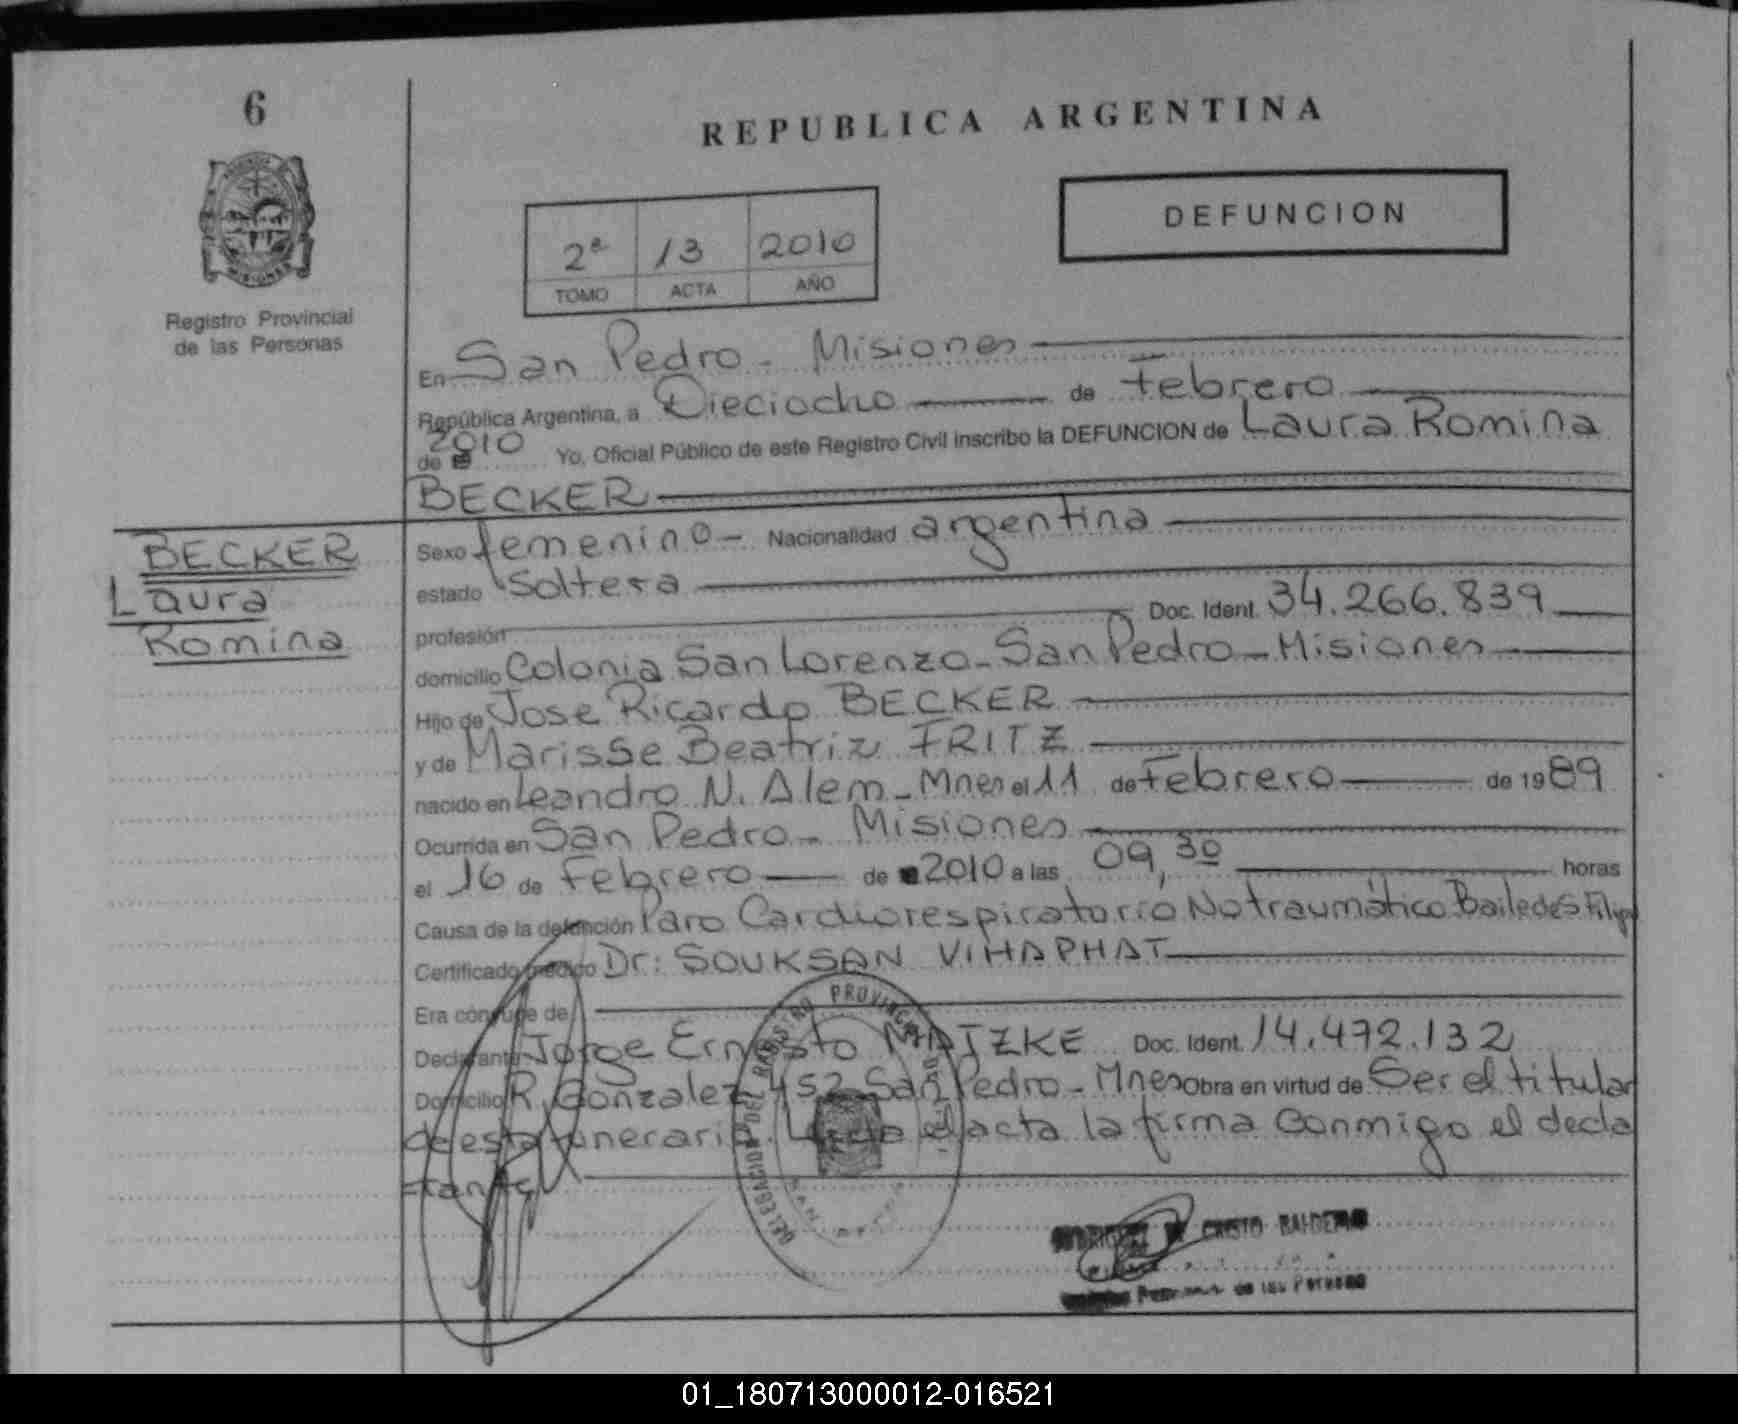 6
REPUBLICA ARGENTINA
DEFUNCION
2ª 13 2010
TOMO ACTA AÑO
MISIONES
Registro Provincial
de las Personas
En San Pedro - Misiones
República Argentina, a Dieciocho de Febrero
de 2010 Yo, Oficial Público de este Registro Civil inscribo la DEFUNCION de Laura Romina
BECKER
BECKER
Laura
Romina
Sexo femenino - Nacionalidad argentina
estado Soltera
profesión Doc. Ident. 34.266.839
domicilio Colonia San Lorenzo - San Pedro - Misiones
Hijo de Jose Ricardo BECKER
y de Marisse Beatriz FRITZ
nacido en Leandro N. Alem - Mnes el 11 de Febrero de 1989
Ocurrida en San Pedro - Misiones
el 16 de Febrero de 2010 a las 09,30 horas
Causa de la defunción Paro Cardiorespiratorio No traumático
Certificado médico Dr: SOUKSAN VIHAPHAT
Era cónyuge de
Declarante Jorge Ernesto MATZKE Doc. Ident. 14.472.132
Domicilio R. Gonzalez 452 San Pedro - Mnes Obra en virtud de Ser el titular
de esta funeraria. Leida el acta la firma Conmigo el decla
rante
DELEGACION DEL REGISTRO PROVINCIAL
CRISTO
de las Personas
01_180713000012-016521